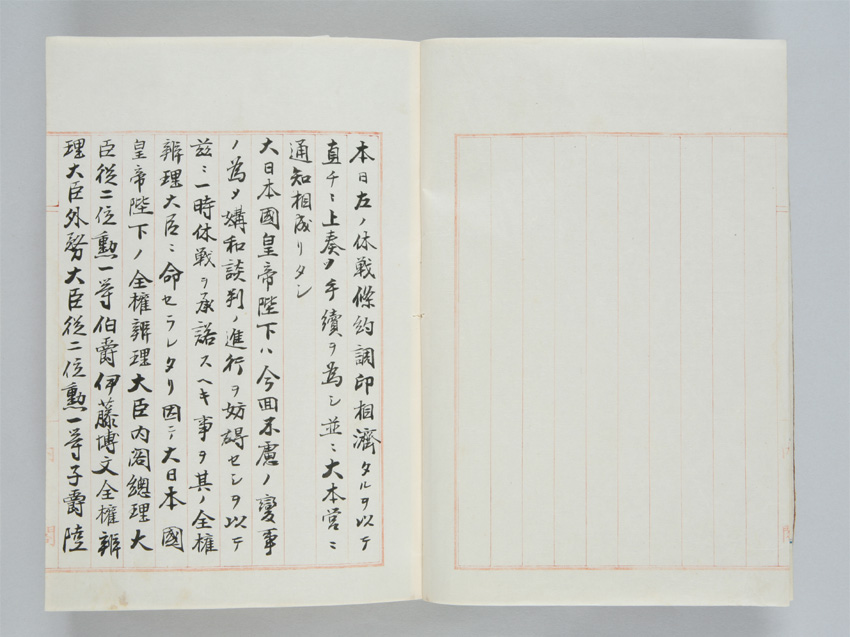 本日左ノ休戦條約調印相濟タルヲ以テ
直チニ上奏ノ手續ヲ為シ並ニ大本営ニ
通知相成リタシ
大日本國皇帝陛下ハ今回不慮ノ變事
ノ為メ媾和談判ノ進行ヲ妨碍セシヲ以テ
茲ニ一時休戦ヲ承諾スヘキ事ヲ其ノ全権
辨理大臣ニ命セラレタリ因テ大日本國
皇帝陛下ノ全権辨理大臣内閣總理大
臣從二位勲一等伯爵伊藤博文全権辨
理大臣外務大臣從二位勲一等子爵陸